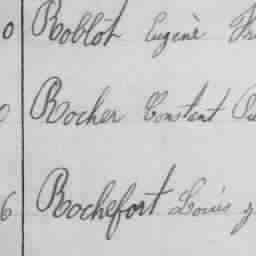 0 Roblot Eugène
Rocher Constant
6 Rochefort Louis